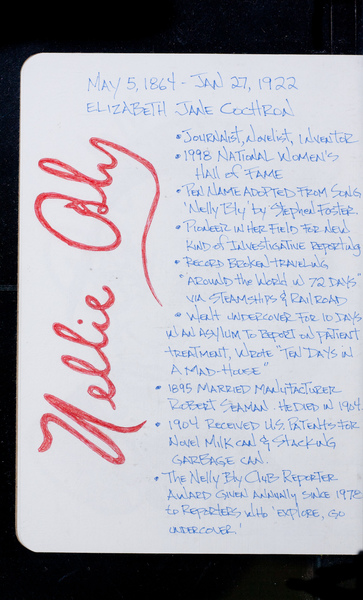 MAY 5, 1864 - JAN 27, 1922
ELIZABETH JANE COCHRON
Nellie Bly
• JOURNALIST, NOVELIST, INVENTOR
• 1998 NATIONAL WOMEN'S
HALL OF FAME
• PEN NAME ADOPTED FROM SONG
'NELLY BLY' by STEPHEN FOSTER
• PIONEER IN HER FIELD FOR NEW
KIND OF INVESTIGATIVE REPORTING
• RECORD BROKEN-TRAVELING
"AROUND THE WORLD IN 72 DAYS"
VIA STEAMSHIPS & RAILROAD
• WENT UNDERCOVER FOR 10 DAYS
IN AN ASYLUM TO REPORT ON PATIENT
TREATMENT, WROTE "TEN DAYS IN
A MAD-HOUSE"
• 1895 MARRIED MANUFACTURER
ROBERT SEAMAN. HE DIED IN 1904
• 1904 RECEIVED U.S. PATENTS FOR
NOVEL MILK CAN & STACKING
GARBAGE CAN.
• THE NELLY BLY CLUB REPORTER
AWARD GIVEN ANNUALLY SINCE 1978
TO REPORTERS WHO 'EXPLORE, GO
UNDERCOVER'